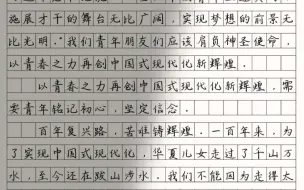 施展才干的舞台无比广阔，实现梦想的前景无
比光明。"我们青年朋友们应该肩负神圣使命，
以青春之力再创中国式现代化新辉煌。
以青春之力再创中国式现代化新辉煌，需
要青年铭记初心，坚定信念。
百年复兴路，苦难铸辉煌。一百年来，为
了实现中国式现代化，华夏儿女走过了千山万
水，至今还在跋山涉水。我们不能因为走得太